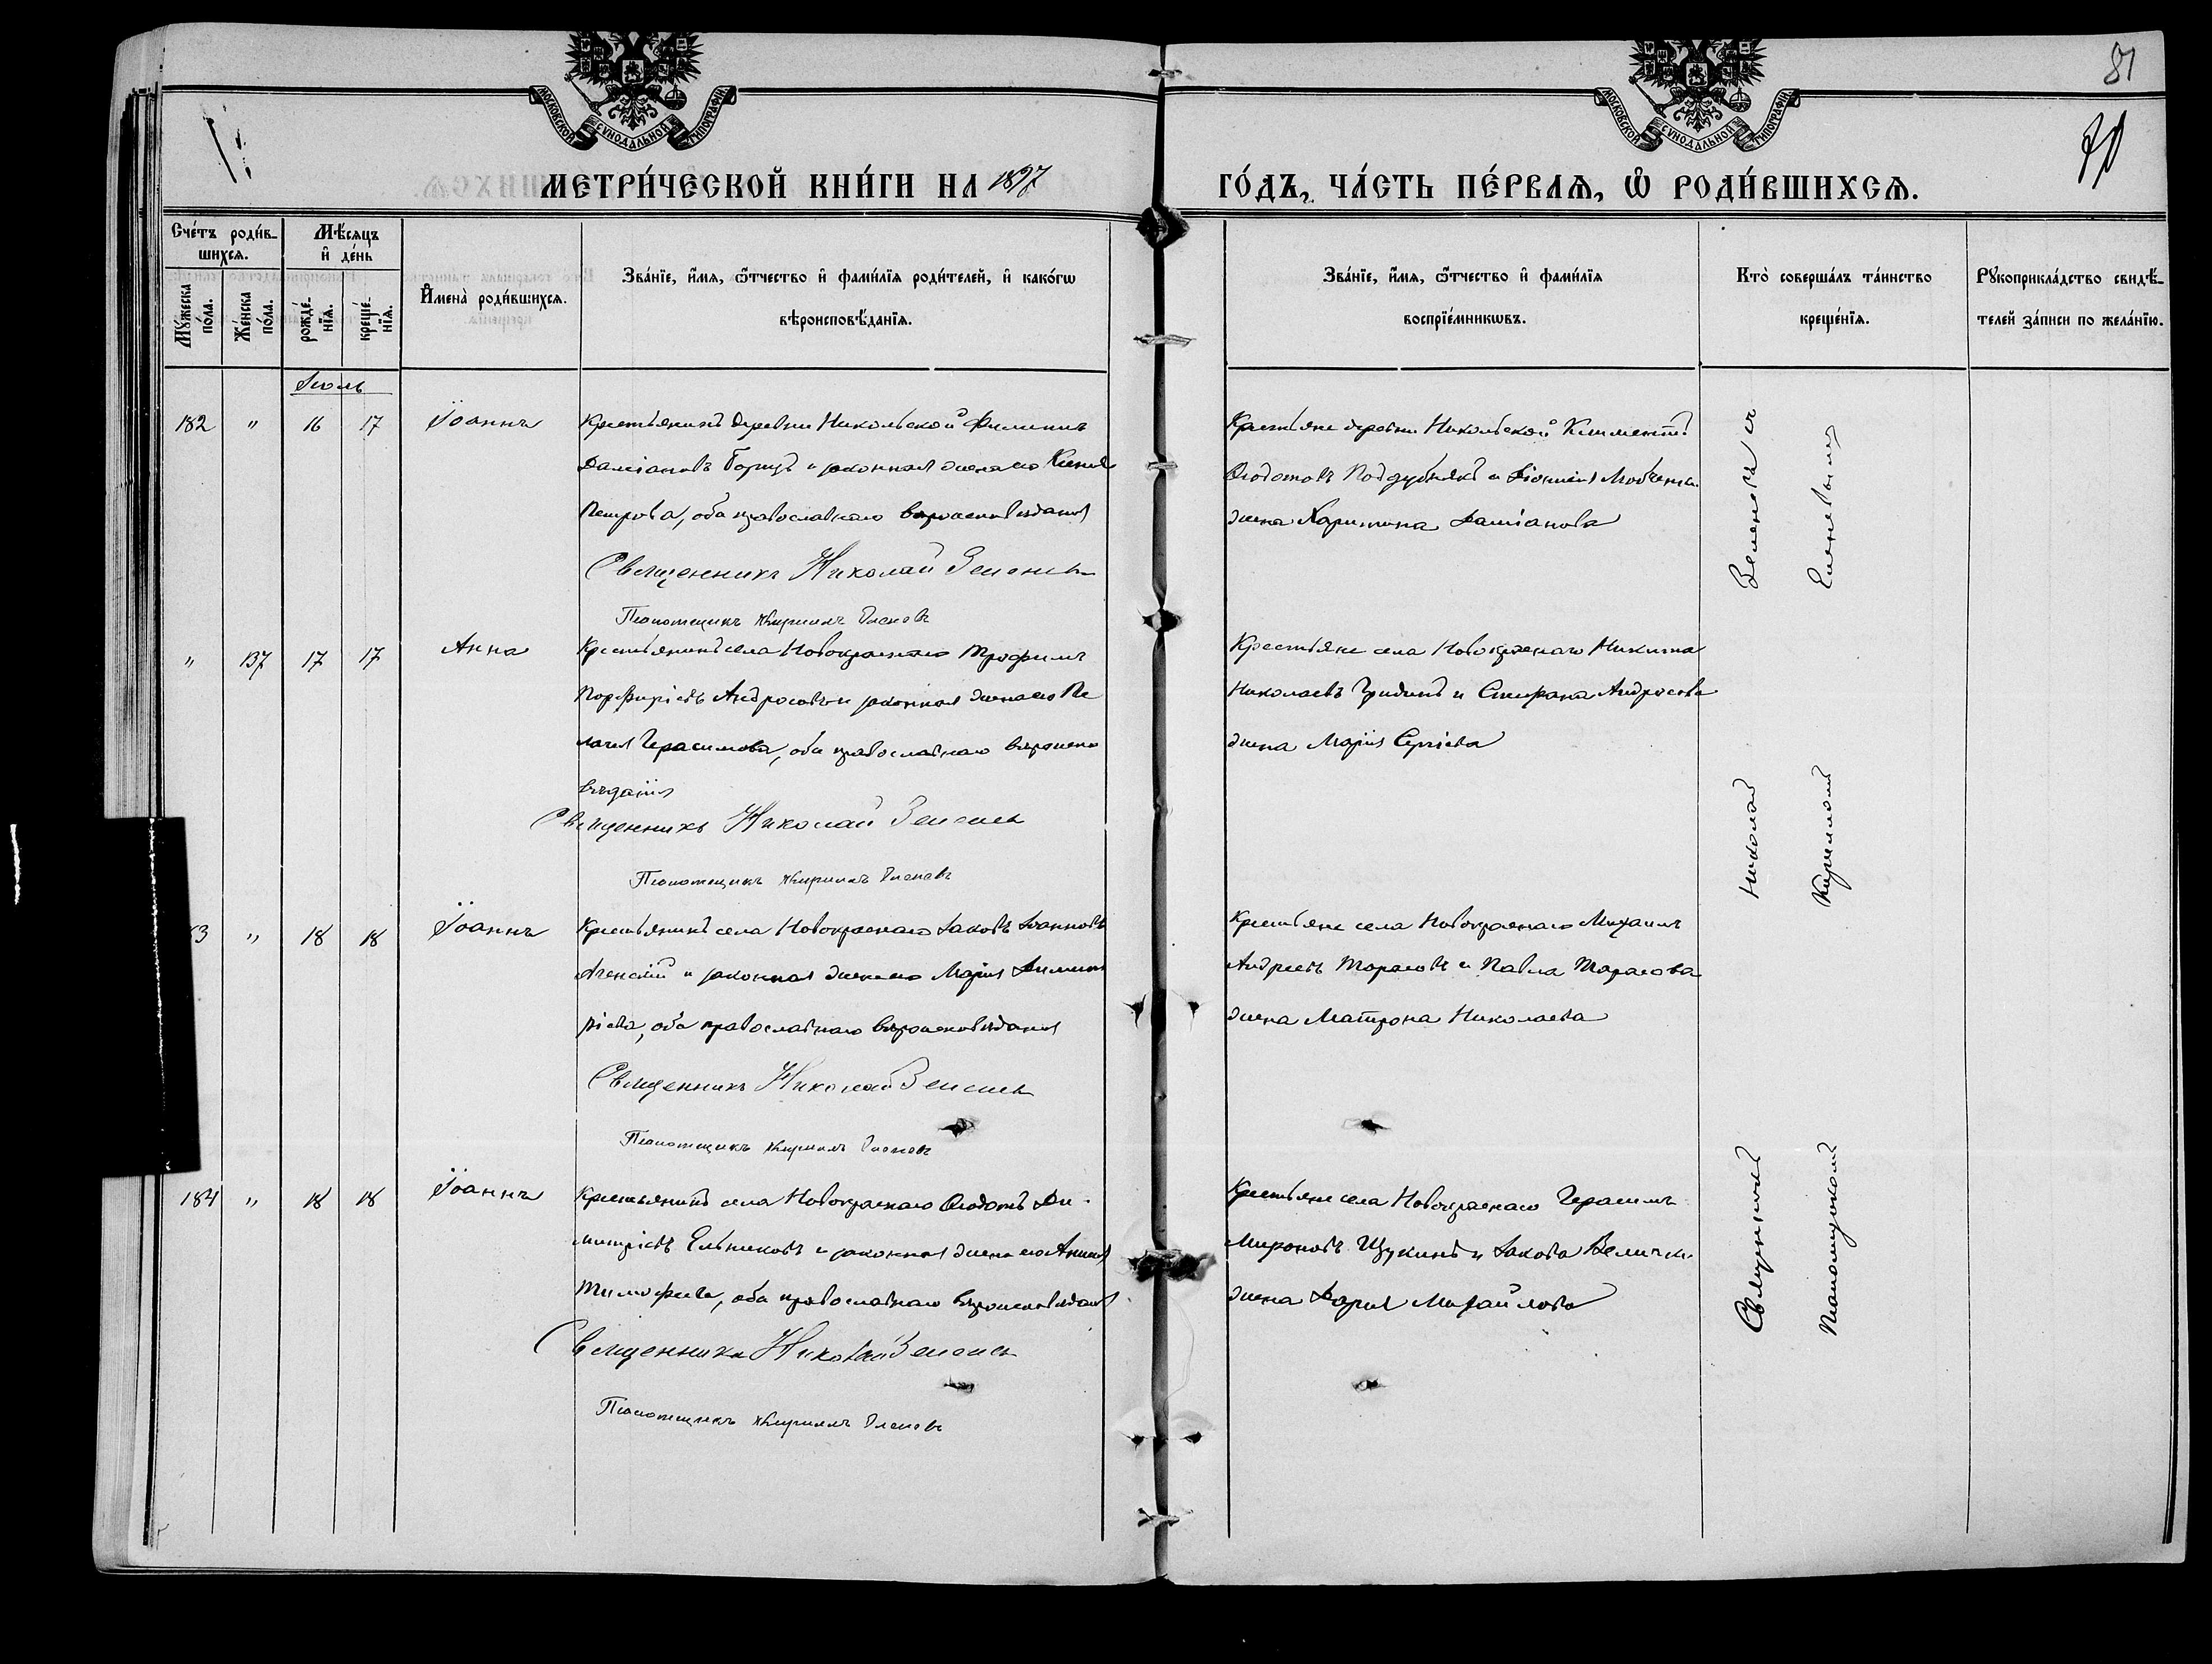 81
МОСКОВСКОЙ СѴНОДАЛЬНОЙ ТИПОГРАФІИ
МОСКОВСКОЙ СѴНОДАЛЬНОЙ ТИПОГРАФІИ
МЕТРИ́ЧЕСКОЙ КНИ́ГИ НА 1897
ГО́ДЪ, ЧА́СТЬ ПЕ́РВАѦ, Ѡ҆ РОДИ́ВШИХСѦ.
Сче́тъ роди́в-
шихсѧ.
Мꙋ́жеска по́ла.
Же́нска по́ла.
Мѣ́сѧцъ
и҆ де́нь
рожде́-
нїѧ.
креще́-
нїѧ.
И҆мена̀ роди́вшихсѧ.
Зва́нїе, и҆́мѧ, ѻ҆́тчество и҆ фами́лїѧ роди́телей, и҆ како́гѡ
вѣроисповѣ́данїѧ.
Зва́нїе, и҆́мѧ, ѻ҆́тчество и҆ фами́лїѧ
воспрїе́мникѡвъ.
Кто̀ соверша́лъ та́инство
креще́нїѧ.
Рꙋкоприкла́дство свидѣ́-
телей за́писи по жела́нїю.
Іюль
182 " 16 17 Іоаннъ
Крестьянинъ деревни Никольской Филиппъ
Даміановъ и законная жена его Ксенія
Петрова, оба православнаго вѣроисповѣданія
Священникъ Николай
Псаломщикъ Кириллъ
Крестьяне деревни Никольской Климентъ
Ѳеодотовъ Поддубнякъ и Діонисія
жена Харитина Даміанова
" 137 17 17 Анна
Крестьянинъ села Новокраснаго Трофимъ
Порфиріевъ Андросовъ и законная жена его Пе
лагея Герасимова, оба православнаго вѣроиспо
вѣданія
Священникъ Николай
Псаломщикъ Кириллъ
Крестьяне села Новокраснаго Никита
Николаевъ Гридинъ и Стефана Андросова
жена Марія Сергіева
3 " 18 18 Іоаннъ
Крестьянинъ села Новокраснаго Іаковъ Іоанновъ
и законная жена его Марія Димит
ріева, оба православнаго вѣроисповѣданія
Священникъ Николай
Псаломщикъ Кириллъ
Крестьяне села Новокраснаго Михаилъ
Андреевъ Тарасовъ и Павла Тарасова
жена Матрона Николаева
184 " 18 18 Іоаннъ
Крестьянинъ села Новокраснаго Ѳеодотъ Ди-
митріевъ Ельниковъ и законная жена его
Тимофеева, оба православнаго вѣроисповѣданія
Священникъ Николай
Псаломщикъ Кириллъ
Крестьяне села Новокраснаго Герасимъ
Мироновъ Щукинъ и Іакова
жена Дарія Михайлова
Священникъ Николай
Псаломщикъ Кириллъ